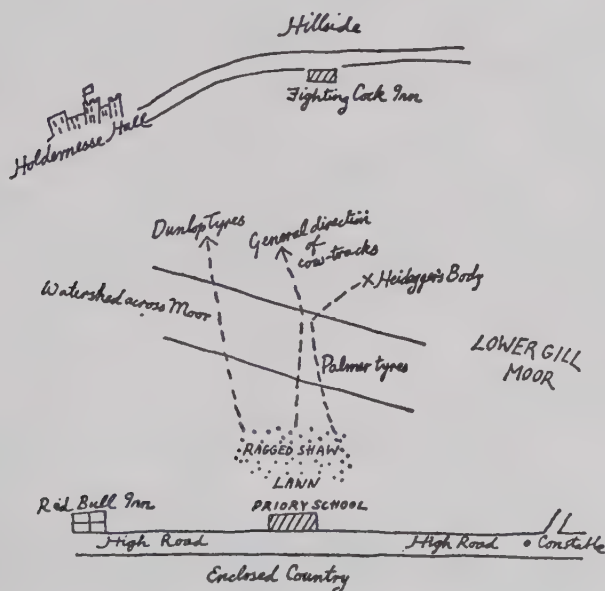 Hillside
Fighting Cock Inn
Holdernesse Hall
Dunlop Tyres
General direction
of
cow-tracks
x Heidegger's Body
Watershed across Moor
LOWER GILL
MOOR
Palmer tyres
RAGGED SHAW
LAWN
PRIORY SCHOOL
Red Bull Inn
High Road
High Road
Constable
Enclosed Country